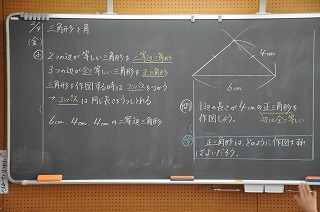 三角形と角
2つの辺が等しい三角形を二等辺三角形
3つの辺が全て等しい三角形を正三角形
三角形を作図する時はコンパスをつかう
→コンパスは同じ長さをうつしとれる
6cm、4cm、4cmの二等辺三角形
4cm
6cm
問
1辺の長さが4cmの正三角形を
作図しよう。
辺は全て等しい
正三角形は、どのように作図すれ
ばよいだろう。